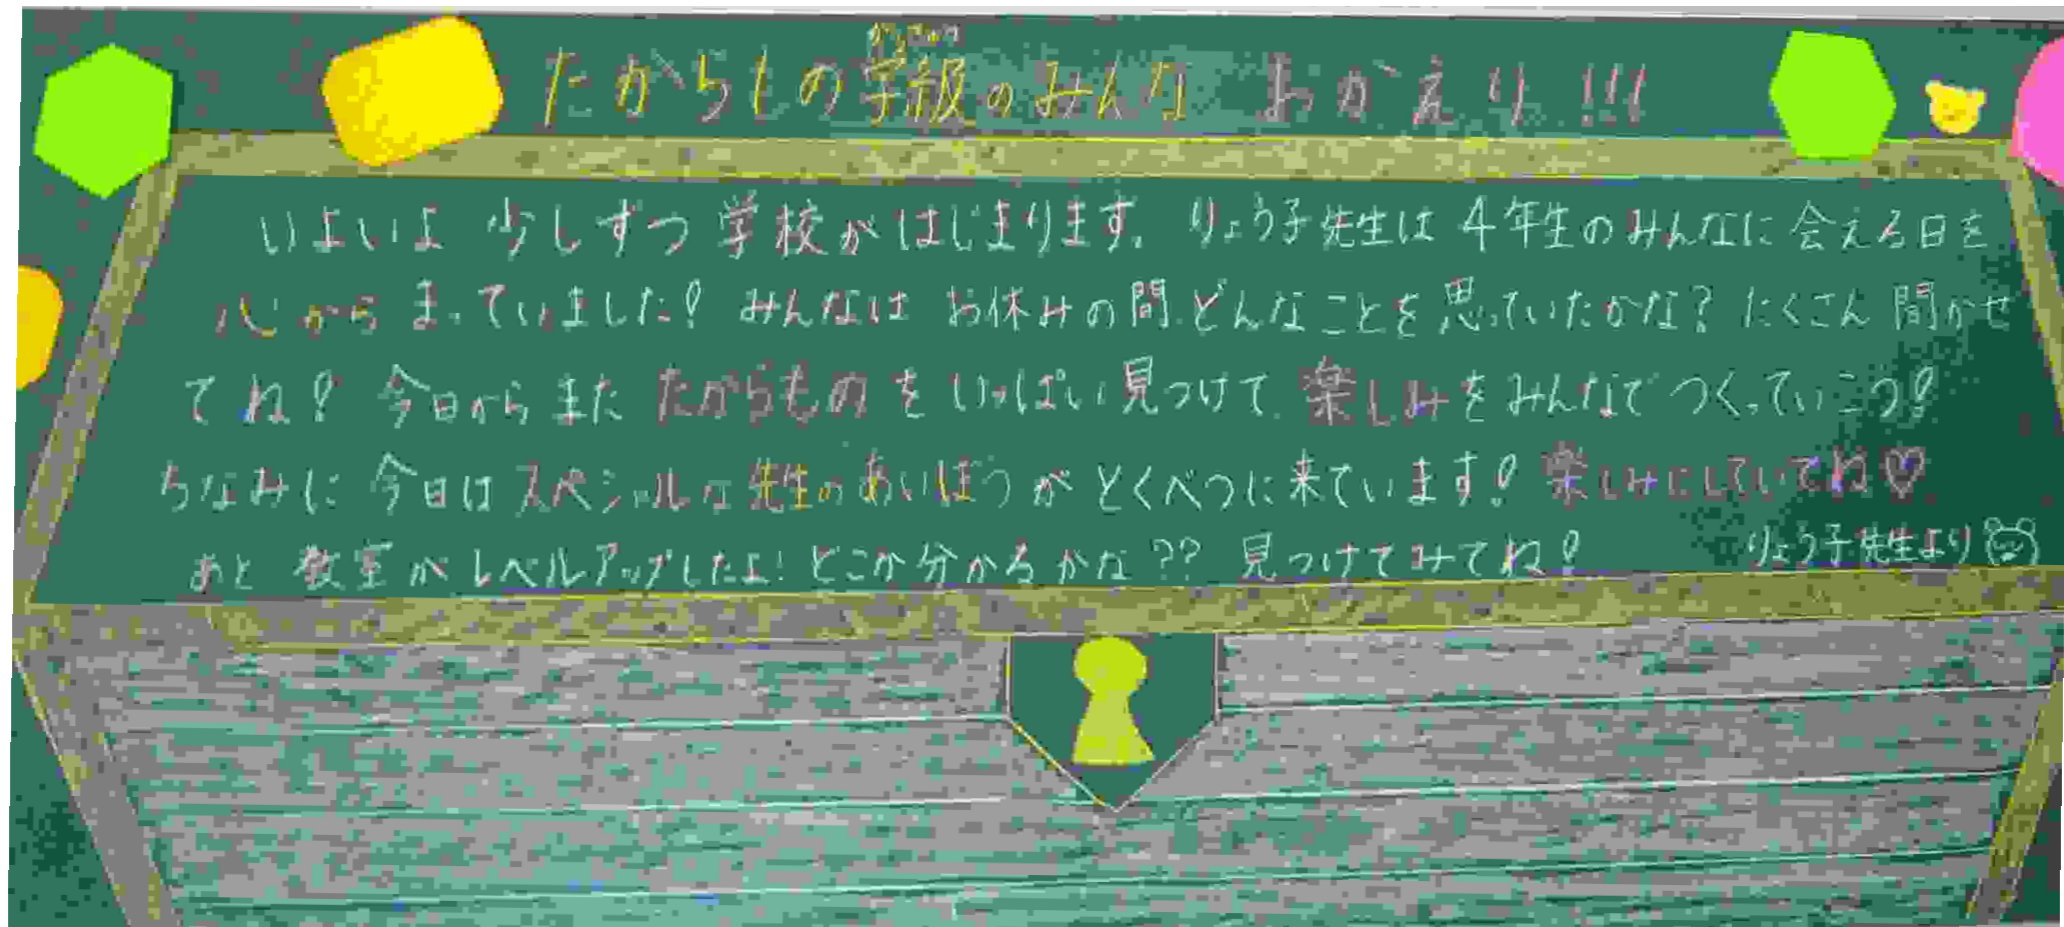 たからしの学級のみんな おかえり!!!
いよいよ 少しずつ 学校がはじまります。りょう子先生は 4年生のみんなに会える日を
心から まっていました! みんなは お休みの間、どんなことを思っていたかな? たくさん 聞かせ
てね! 今日から また たからものを いっぱい 見つけて、楽しみを みんなで つくっていこう!
ちなみに 今日は スペシャルな 先生のあいぼうが とくべつに来ています! 楽しみにしていてね♡
あと 教室が レベルアップしたよ! どこか分かるかな?? 見つけてみてね!
りょう子先生より